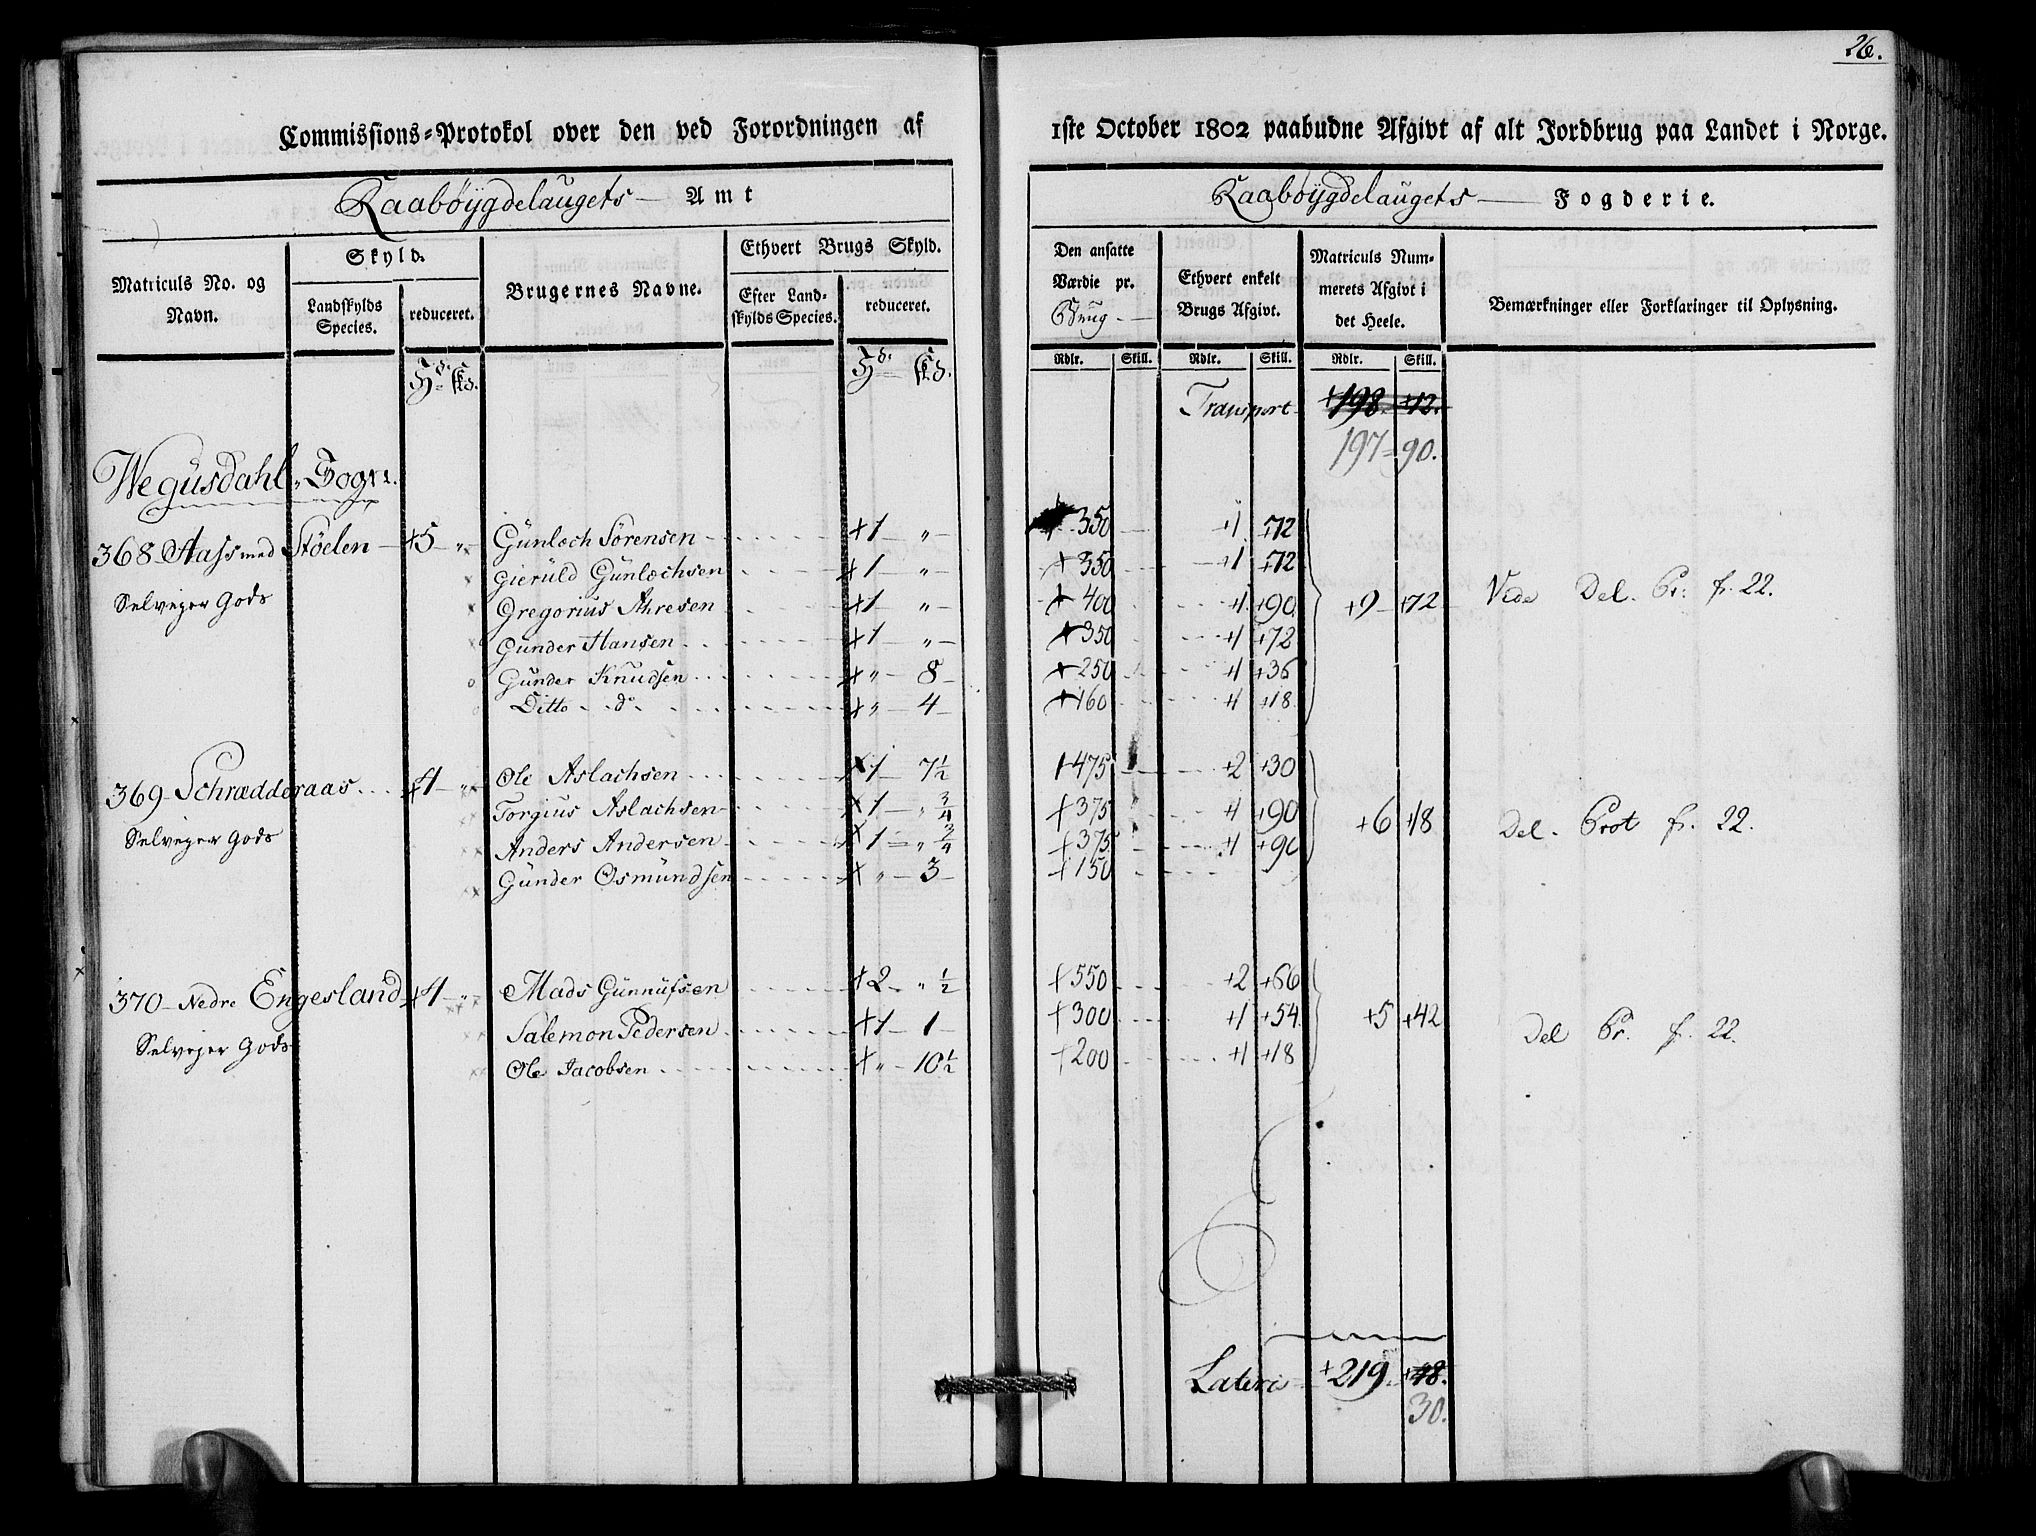 26.
Commissions-Protokol over den ved Forordningen af 1ste October 1802 paabudne Afgivt af alt Jordbrug paa Landet i Norge.
Raabøÿgdelaugets — Amt
Raabøÿgdelaugets — Fogderie.
Matriculs No. og Navn.
Skyld.
Landskylds Species.
reduceret.
Brugernes Navne.
Ethvert Brugs Skyld.
Efter Landskylds Species.
reduceret.
Den ansatte Værdie pr. Brug
Ethvert enkelt Brugs Afgivt.
Matriculs Nummerets Afgivt i det Heele.
Bemærkninger eller Forklaringer til Oplysning.
Rdlr. Skill. Rdlr. Skill. Rdlr. Skill.
Hd. Skd. Hd. Skd.
Transport +198. +12.
197 = 90.
Wegusdahl Sogn.
368 Aass med Støelen +5 „ Gunloch Sørensen +1 „ +350 +1 +72
Gieruld Gunlochsen +1 „ +350 +1 +72
Selvejer Gods Gregorius Ahresen +1 „ +400 +1 +90 +9 +72 Vide Del. Pr: fr. 22.
Gunder Hansen +1 „ +350 +1 +72
Gunder Knudsen +„ 8 +250 +1 +36
Ditto do +„ 4 +160 +1 +18
369 Schrædderaas +4 „ Ole Aslachsen +1 7½ +475 +2 +30
Torgius Aslachsen +1 „ ¾ +375 +1 +90 +6 +18 Del. Prot fr. 22.
Selvejer Gods Anders Andersen +1 „ ¾ +375 +1 +90
Gunder Osmundsen +„ 3 +150
370 Nedre Engesland +4 „ Mads Gunnufsen +2 „ ½ +550 +2 +66
Salemon Pedersen +1 1 +300 +1 +54 +5 +42 Del Pr. fr. 22.
Selvejer Gods Ole Jacobsen +„ 10½ +200 +1 +18
Lateris +219 +48.
30.